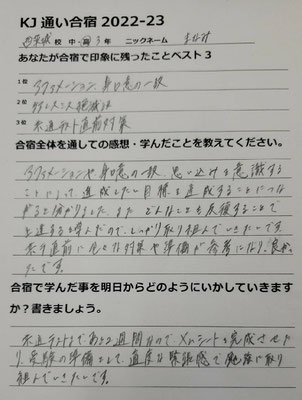 KJ 通い合宿 2022-23
校 中・高 3年 ニックネーム
あなたが合宿で印象に残ったことベスト3
1位 アファメーション、身口意の一致
2位
3位 共通テスト直前対策
合宿全体を通しての感想・学んだことを教えてください。
アファメーションや身口意の一致、思い込みを意識する
ことによって、達成したい目標を達成することにつな
がると分かりました。また、どんなことも反復することで
上達すると学んだので、しっかり取り組んでいきたいです。
直前に な対策や準備が参考になり、良かっ
たです。
合宿で学んだ事を明日からどのようにいかしていきます
か？書きましょう。
共通テストまであと2週間なので、 シートを完成させた
り、受験の準備をして、適度な緊張感で勉強に取り
組んでいきたいです。